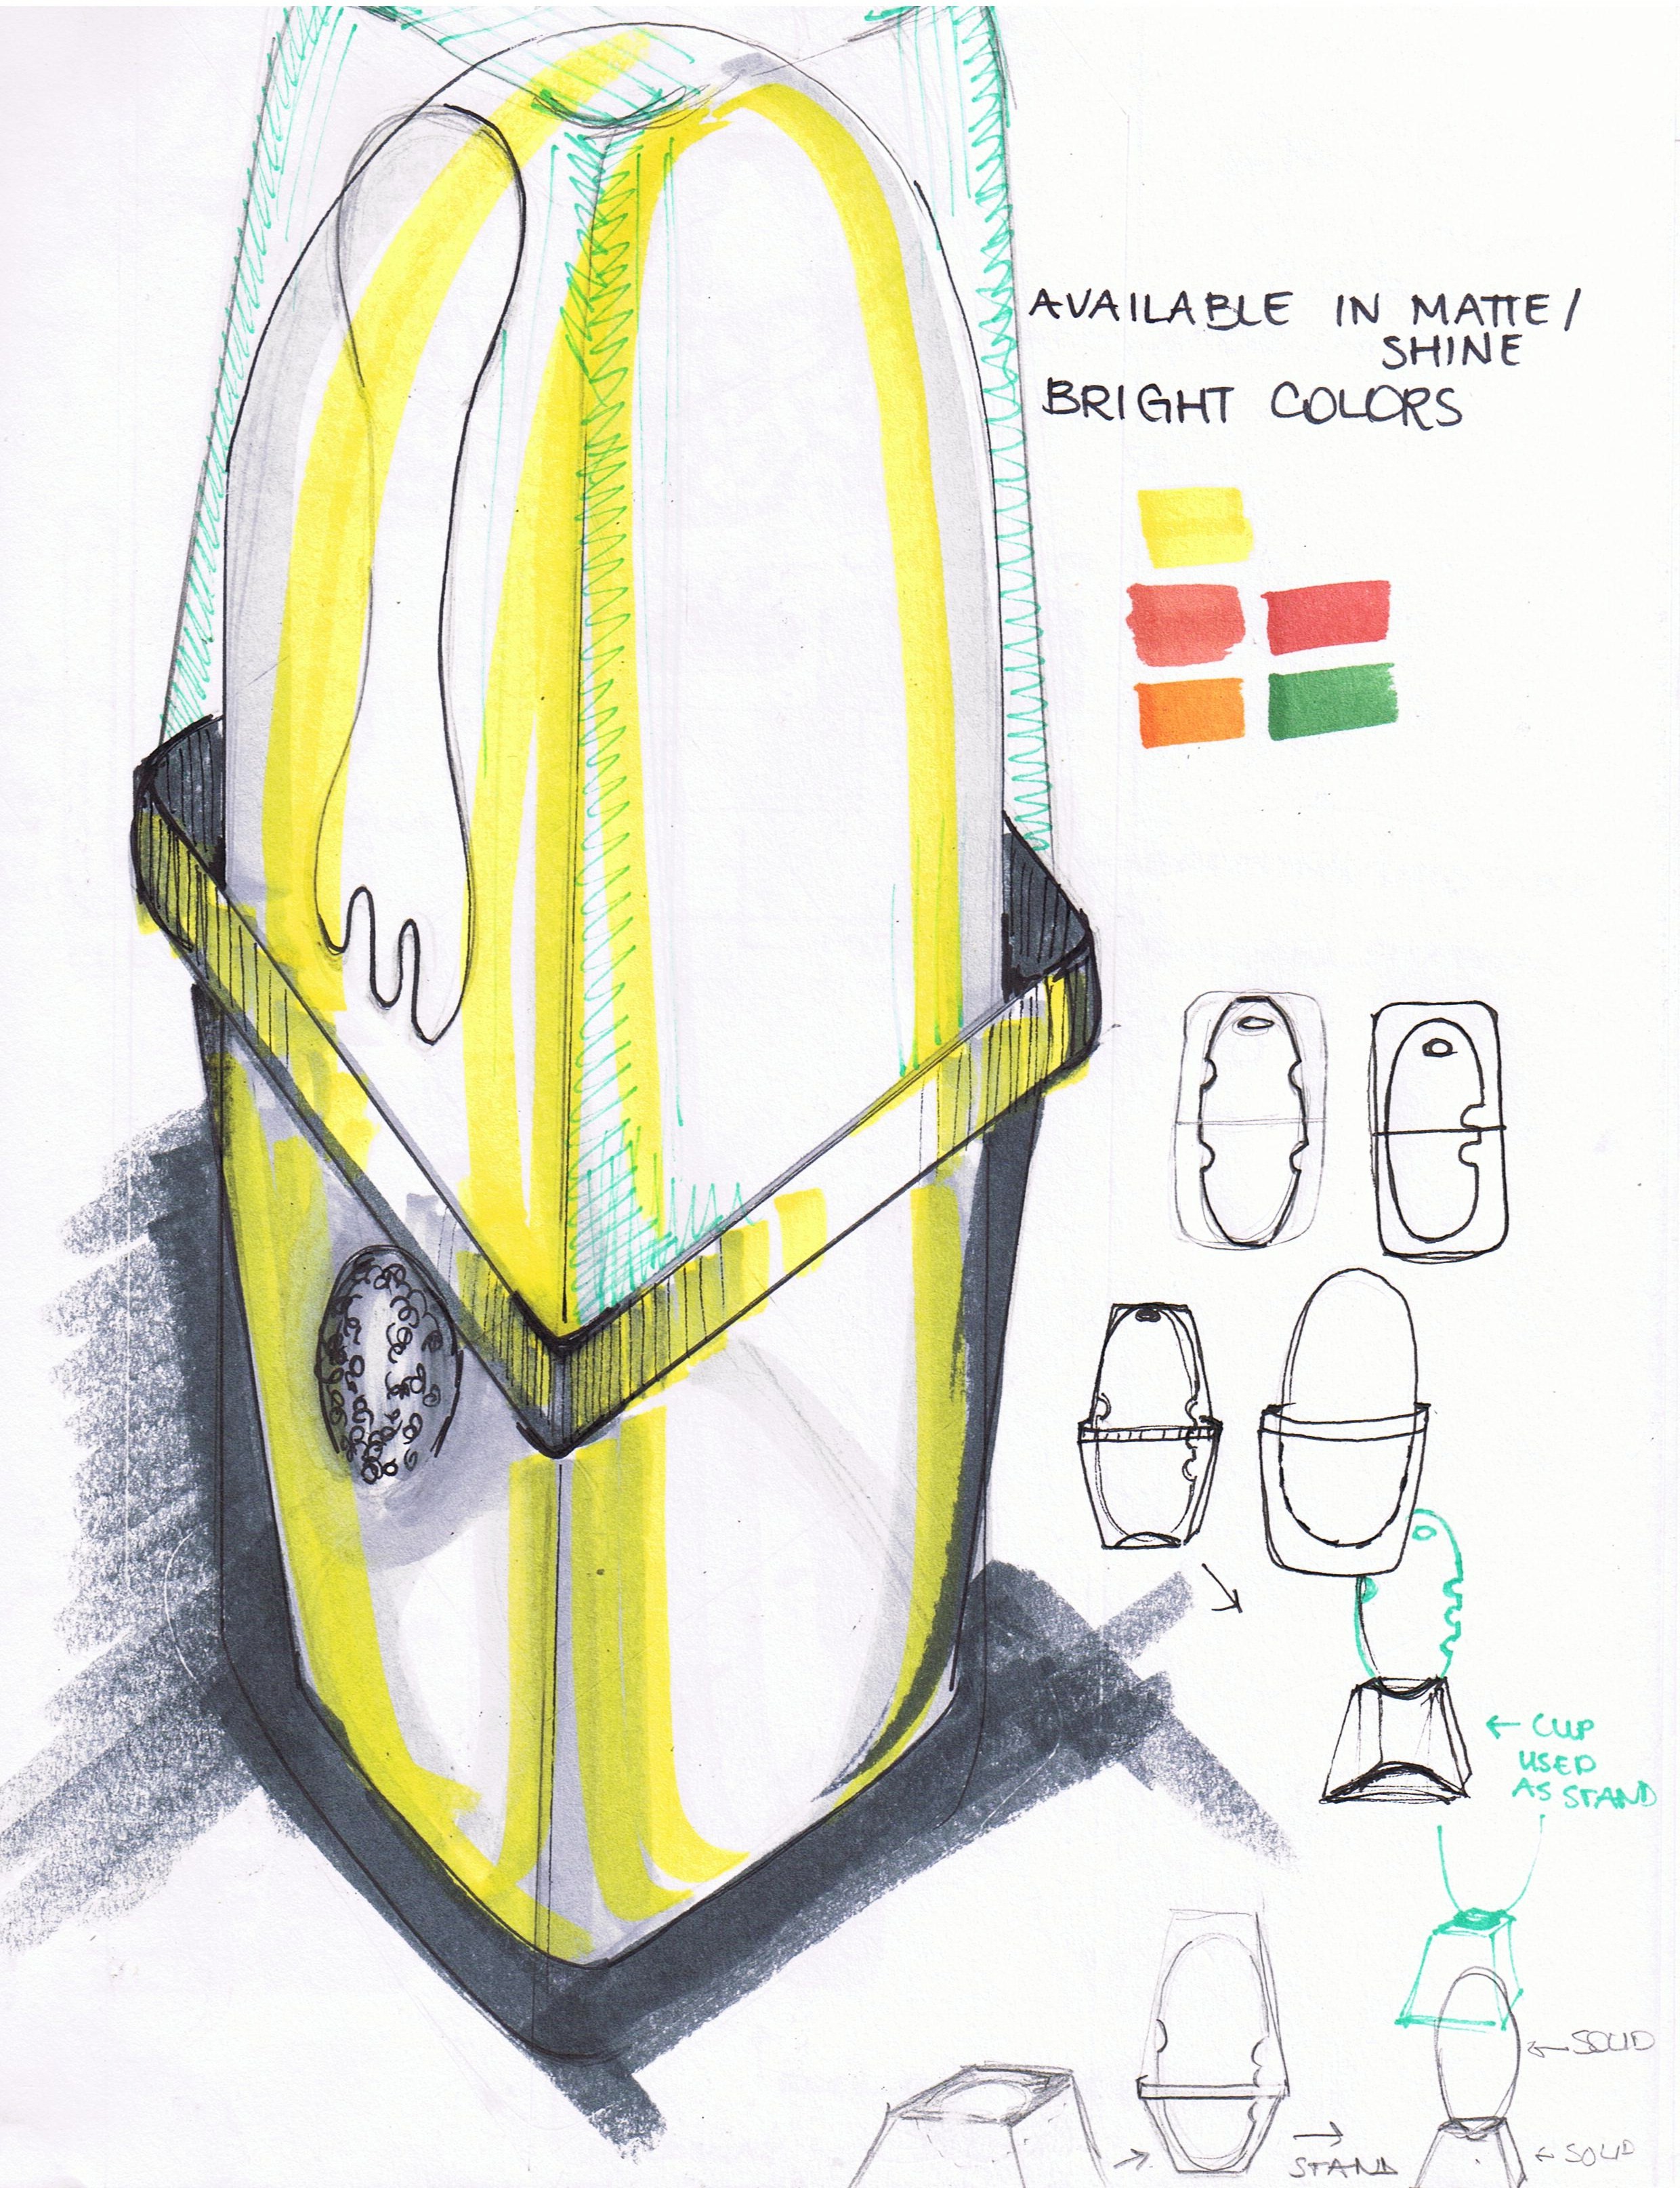 AVAILABLE IN MATTE/
SHINE
BRIGHT COLORS
← CUP
USED
AS STAND
← SOLID
→
STAND
← SOLID